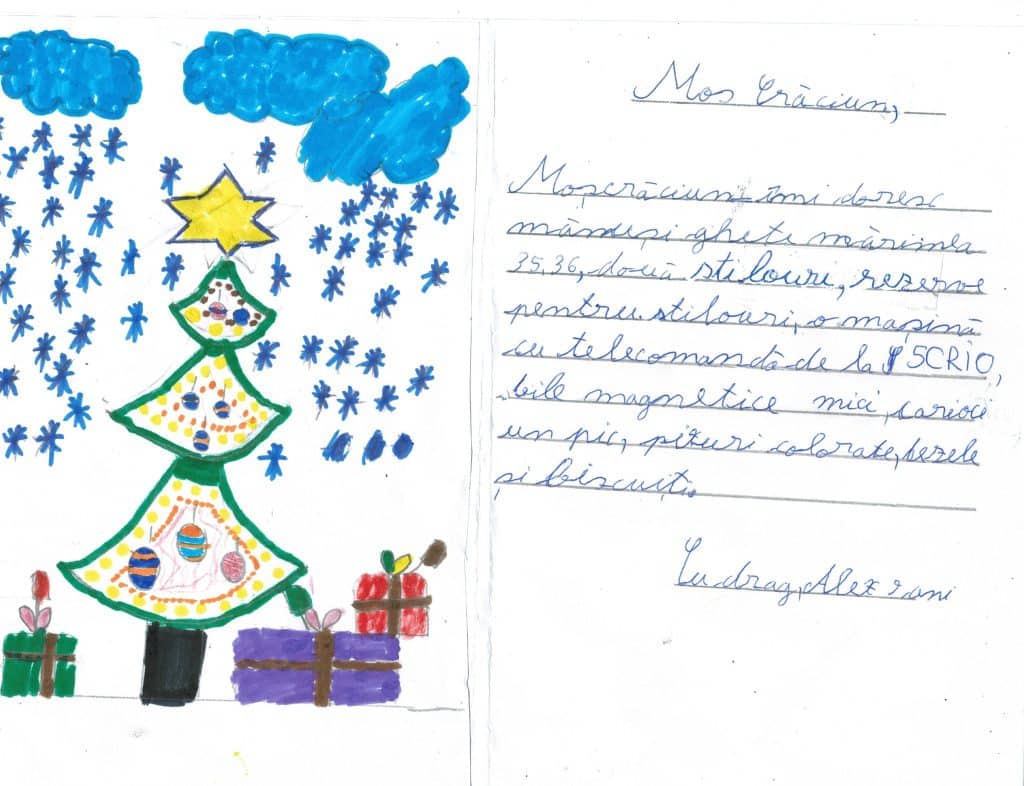 Mos Crăciun,
Moșcrăciun îmi doresc
mănuși ghete mărimea
35,36, două stilouri, rezerve
pentru stilouri, o mașină
cu telecomandă de la 5CRIO,
bile magnetice mici, carioci
un pic, pixuri colorate, bezele
și biscuiți.
Cu drag, Alex 9 ani